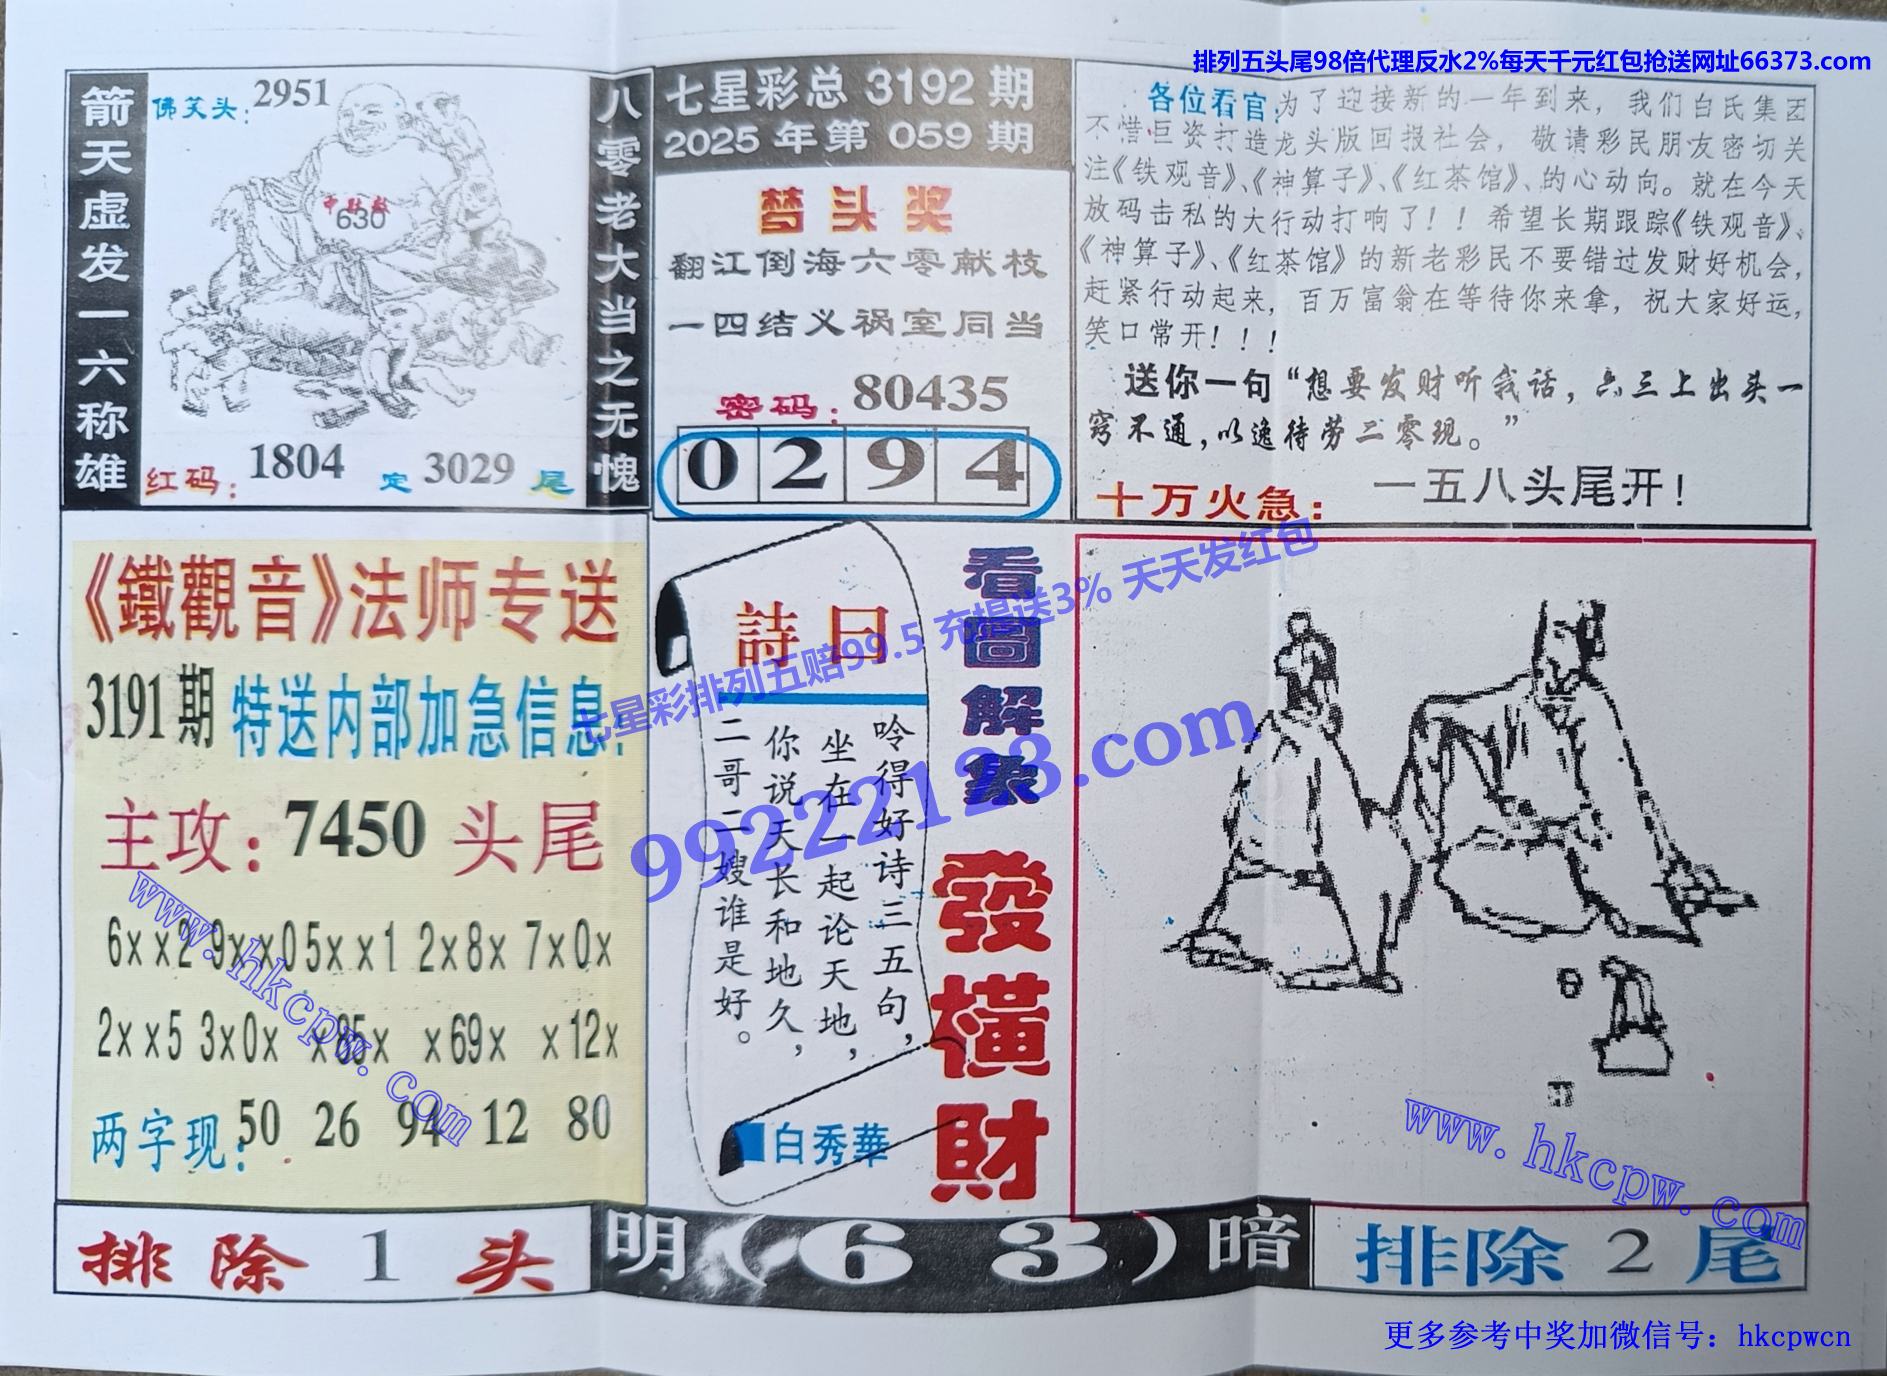 排列五头尾98倍代理反水2%每天千元红包抢送网址66373.com
箭天虚发一六称雄
佛笑头：2951
中肚数
630
红码：1804 定 3029 尾
八零老大当之无愧
七星彩总 3192 期
2025 年第 059 期
梦头奖
翻江倒海六零献枝
一四结义祸室同当
密码：80435
0 2 9 4
各位看官：为了迎接新的一年到来，我们白氏集团
不惜巨资打造龙头版回报社会，敬请彩民朋友密切关
注《铁观音》、《神算子》、《红茶馆》、的心动向。就在今天
放码击私的大行动打响了！！希望长期跟踪《铁观音》、
《神算子》、《红茶馆》的新老彩民不要错过发财好机会，
赶紧行动起来，百万富翁在等待你来拿，祝大家好运，
笑口常开！！！
送你一句“想要发财听我话，六三上出头一
窍不通，以逸待劳二零现。”
十万火急：一五八头尾开！
《鐵觀音》法师专送
3191期 特送内部加急信息：
主攻：7450 头尾
6xx2 9xx0 5xx1 2x8x 7x0x
2xx5 3x0x x85x x69x x12x
两字现：50 26 94 12 80
詩曰
吟得好诗三五句，
坐在一起论天地，
你说天长和地久，
二哥二嫂谁是好。
白秀華
看圖解象
發橫財
七星彩排列五赔99.5 充提送3% 天天发红包
99222123.com
www.hkcpw.com
www.hkcpw.com
排除 1 头
明（6 3）暗
排除 2 尾
更多参考中奖加微信号：hkcpwcn